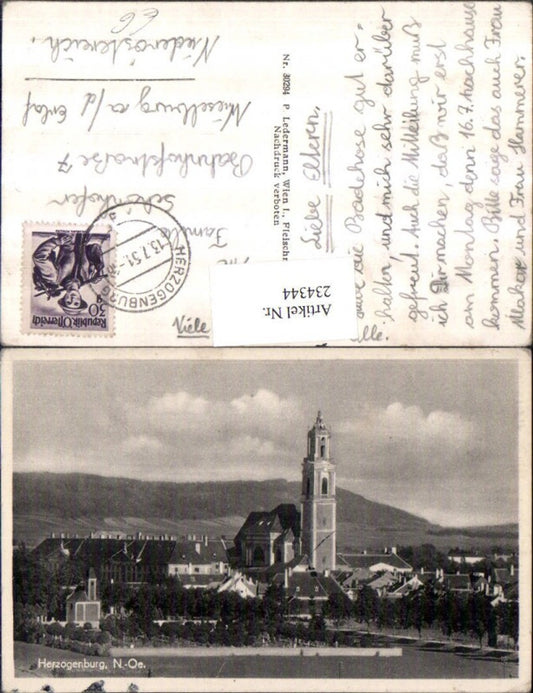 Liebe Eltern,
habe die Badehose gut er-
halten, und mich sehr darüber
gefreut. Auch die Mitteilung muß
ich Dir machen, daß wir erst
am Montag, dem 16.7. nachhause
kommen. Bitte sage das auch Frau
und Frau
Viele
alle.
Nr. 30294 P Ledermann, Wien I., Fleischm
Nachdruck verboten
Familie
Schönhofer
Bahnhofstraße 7
Wieselburg a/d Erlaf
Niederösterreich.
HERZOGENBURG
13.7.51
30 g
Republik Österreich
Artikel Nr.
234344
Herzogenburg, N.-Oe.